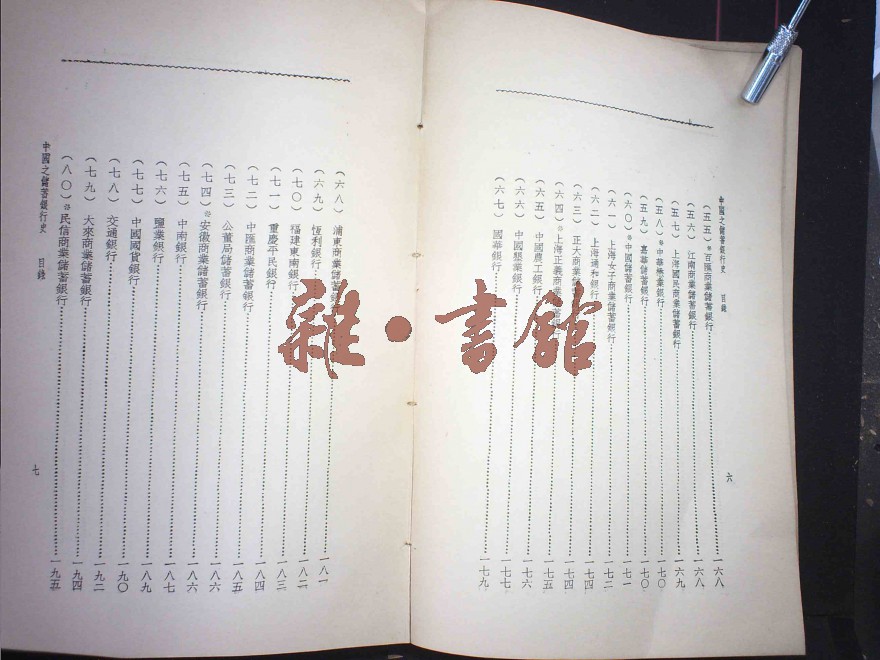 中國之儲蓄銀行史　目錄
（五五）百匯商業儲蓄銀行…………一六八
（五六）江南商業儲蓄銀行…………一六八
（五七）上海國民商業儲蓄銀行…………一六九
（五八）中華勸業銀行…………一七〇
（五九）嘉華儲蓄銀行…………一七〇
（六〇）中國儲蓄銀行…………一七一
（六一）上海女子商業儲蓄銀行…………一七二
（六二）上海通和銀行…………一七四
（六三）正大商業儲蓄銀行…………一七四
（六四）上海正義商業儲蓄銀行…………一七五
（六五）中國農工銀行…………一七六
（六六）中國墾業銀行…………一七七
（六七）國華銀行…………一七九
六
（六八）浦東商業儲蓄銀行…………一八一
（六九）恆利銀行…………一八二
（七〇）福建東南銀行…………一八二
（七一）重慶平民銀行…………一八三
（七二）中匯商業儲蓄銀行…………一八四
（七三）公董局儲蓄銀行…………一八五
（七四）安徽商業儲蓄銀行…………一八六
（七五）中南銀行…………一八六
（七六）鹽業銀行…………一八七
（七七）中國國貨銀行…………一八九
（七八）交通銀行…………一九〇
（七九）大來商業儲蓄銀行…………一九二
（八〇）民信商業儲蓄銀行…………一九五
中國之儲蓄銀行史　目錄
七
雜•書館